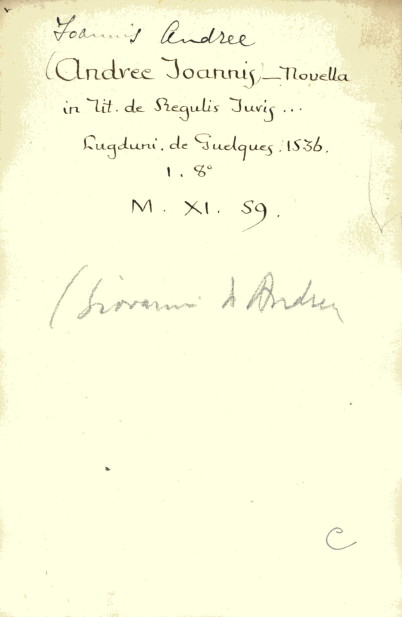 Joannis Andree
(Andree Joannis) — Novella
in Tit. de Regulis Juris ...
Lugduni. de Guelques. 1536.
1. 8°
M. XI. 59.
(Giovanni d'Andrea
C